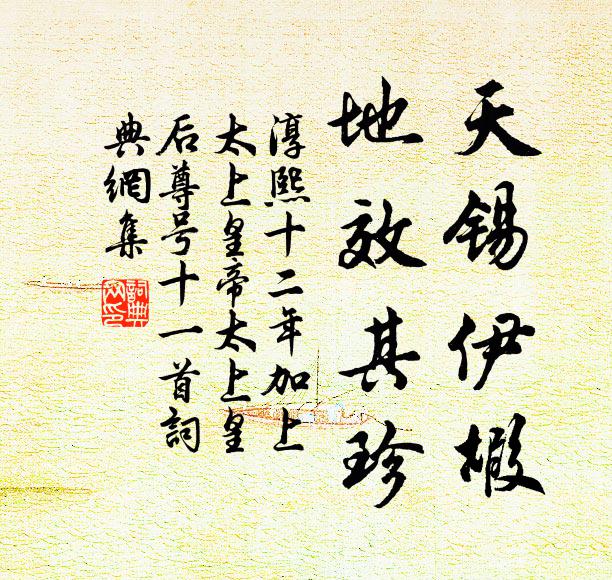 天錫伊椵
地效其珍
淳熙十二年加上
太上皇帝太上皇
后尊号十一首詞
典網集
詞典
网印